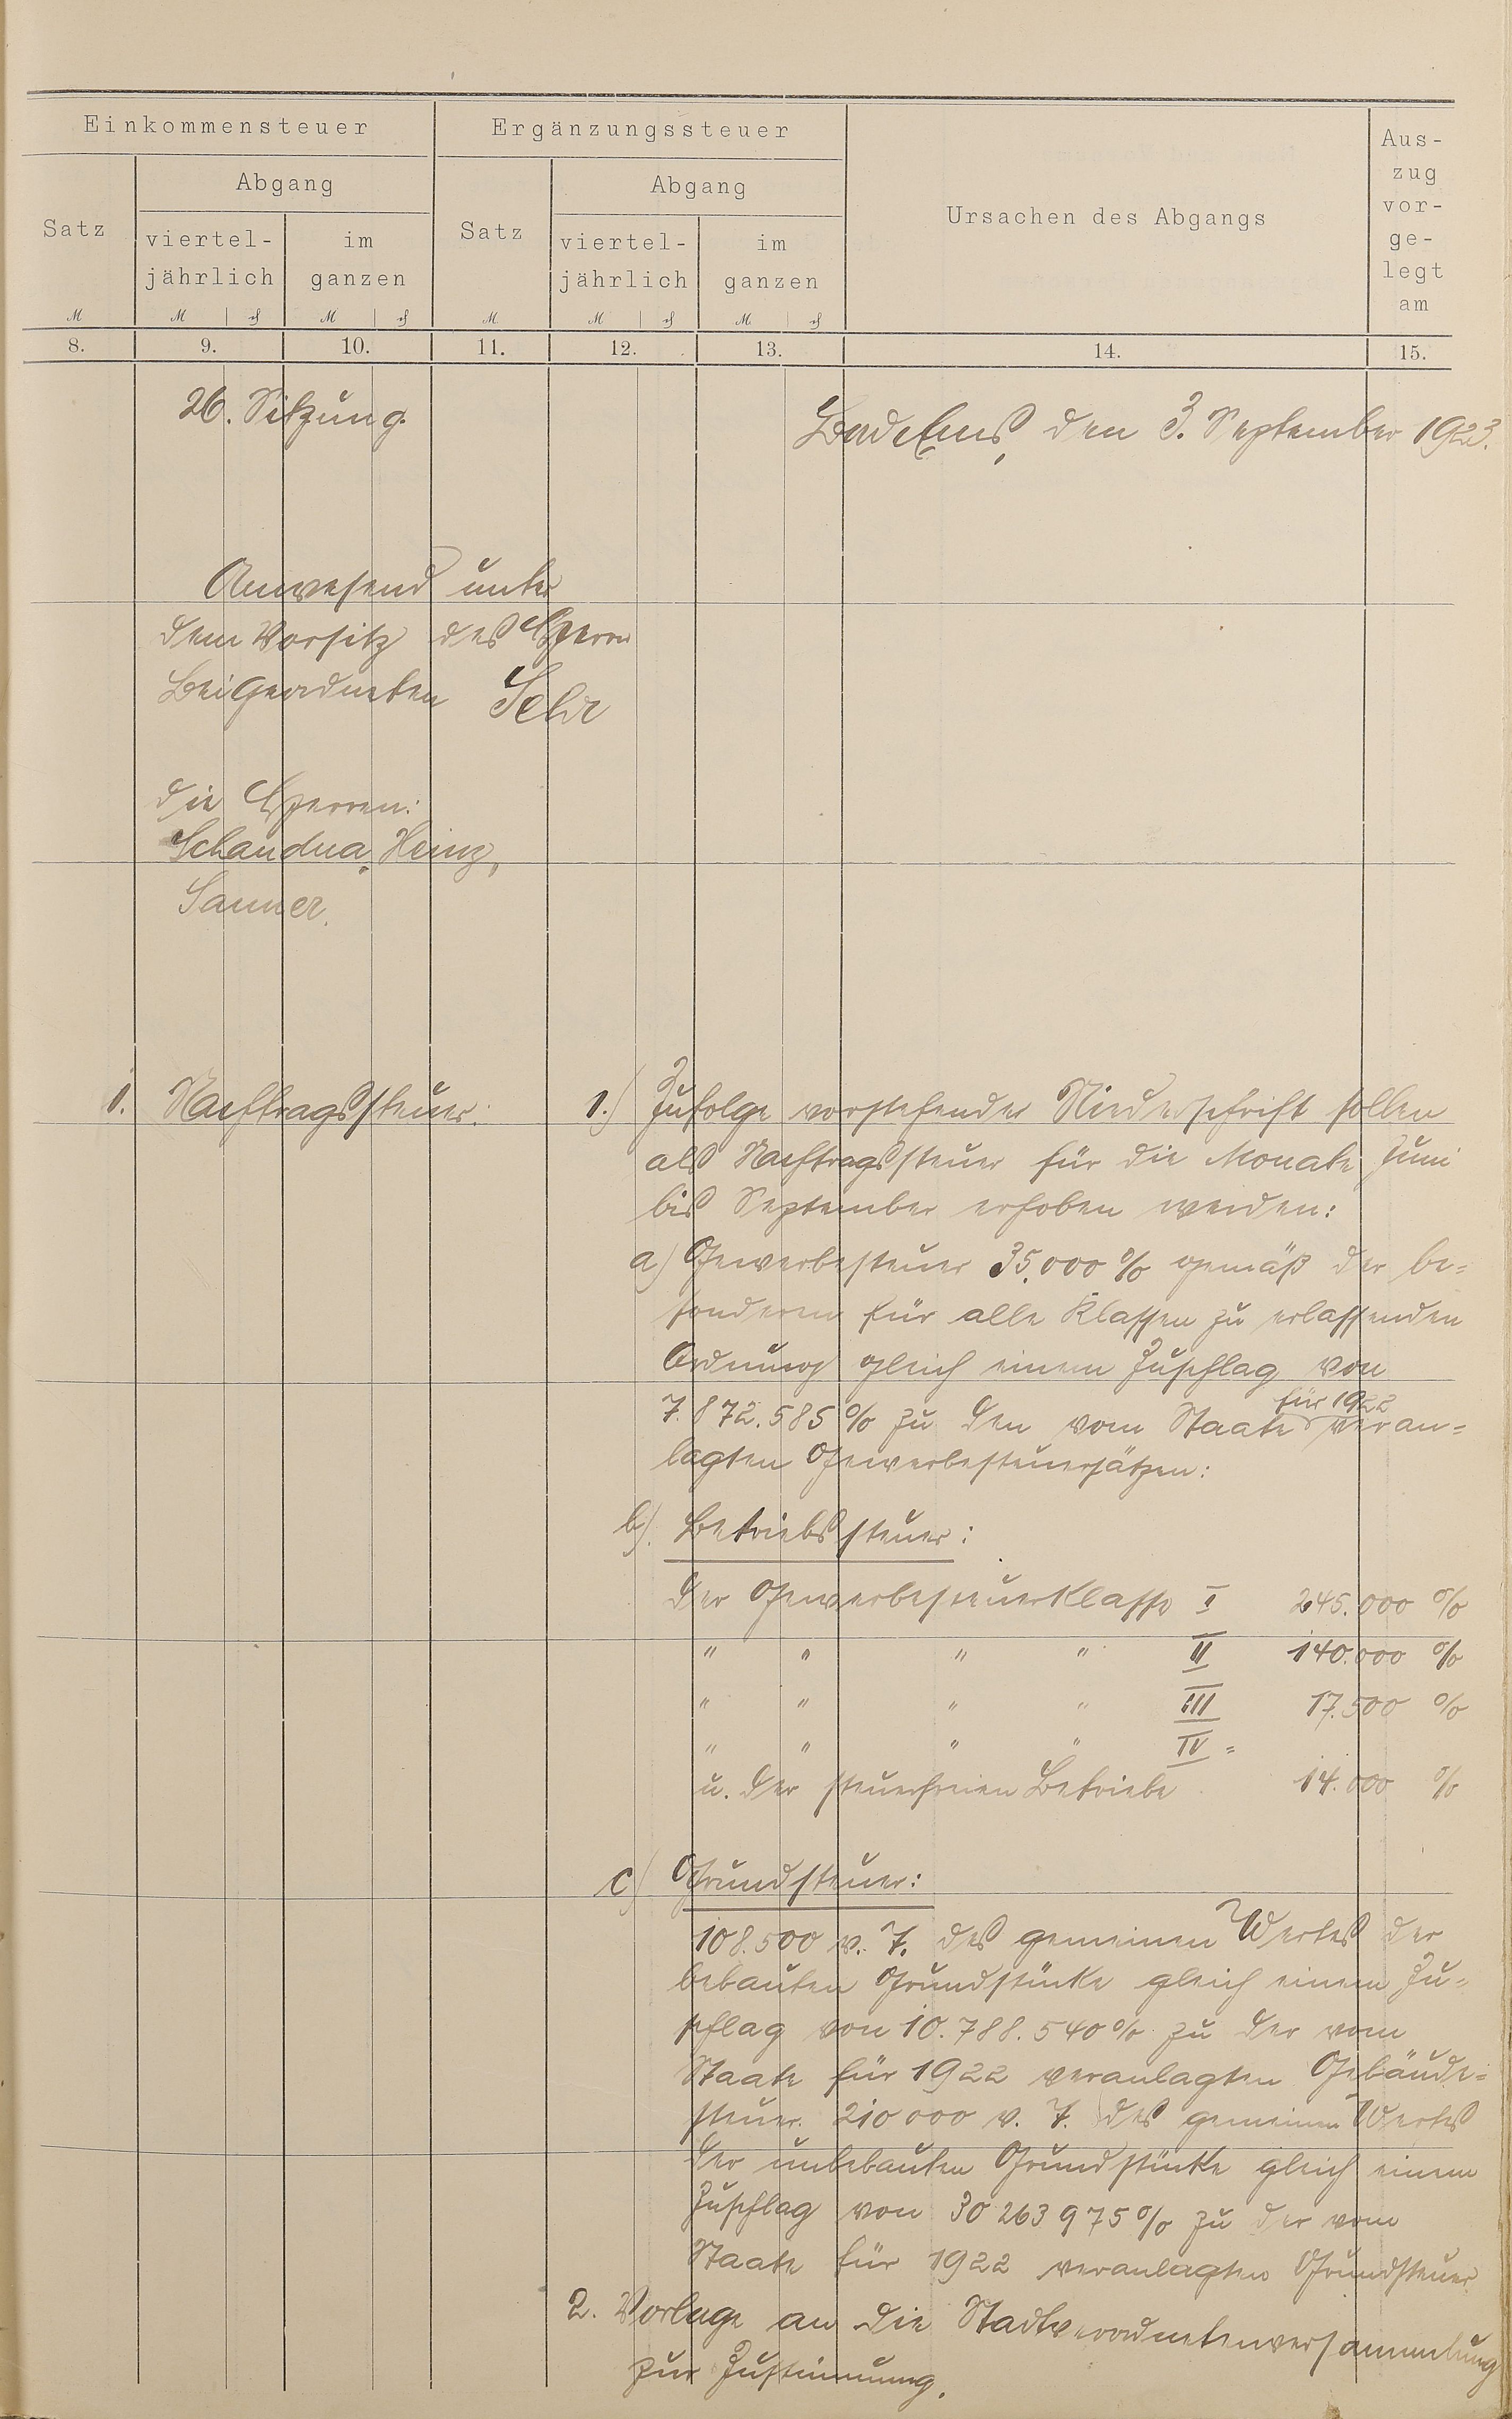 Einkommensteuer
Ergänzungssteuer
Ursachen des Abgangs
Aus-
zug
vor-
ge-
legt
am
Satz
Abgang
viertel-
jährlich
im
ganzen
Satz
Abgang
viertel-
jährlich
im
ganzen
M M M M M M
8. 9. 10. 11. 12. 13. 14. 15.
26. Sitzung.
Bad Ems, den 3. September 1923.
Anwesend unter
dem Vorsitz des Herrn
Beigeordneten
die Herren:
Schandua, Heinz,
Sanner.
1. Nachtragssteuer.
1.) Zufolge vorstehender Niederschrift sollen
als Nachtragssteuer für die Monate Juni
bis September erhoben werden:
a) Gewerbesteuer 35.000 % gemäß der be=
sonderen für alle Klassen zu erlassenden
Ordnung gleich einem Zuschlag von
7.872.585 % zu den vom Staate für 1922 veran=
lagten Gewerbesteuersätzen:
b). Betriebssteuer:
der Gewerbesteuerklasse I 245.000 %
" " " " II 140.000 %
" " " " III 17.500 %
" " " " IV =
u. der steuerfreien Betriebe 14.000 %
c) Grundsteuer:
108.500 v. T. des gemeinen Wertes der
bebauten Grundstücke gleich einem Zu=
schlag von 10.788.540 % zu der vom
Staate für 1922 veranlagten Gebäude=
steuer. 210 000 v. T. des gemeinen Wertes
der unbebauten Grundstücke gleich einem
Zuschlag von 30 263 975 % zu der vom
Staate für 1922 veranlagten Grundsteuer
2. Vorlage an die Stadtverordnetenversammlung
zur Zustimmung.